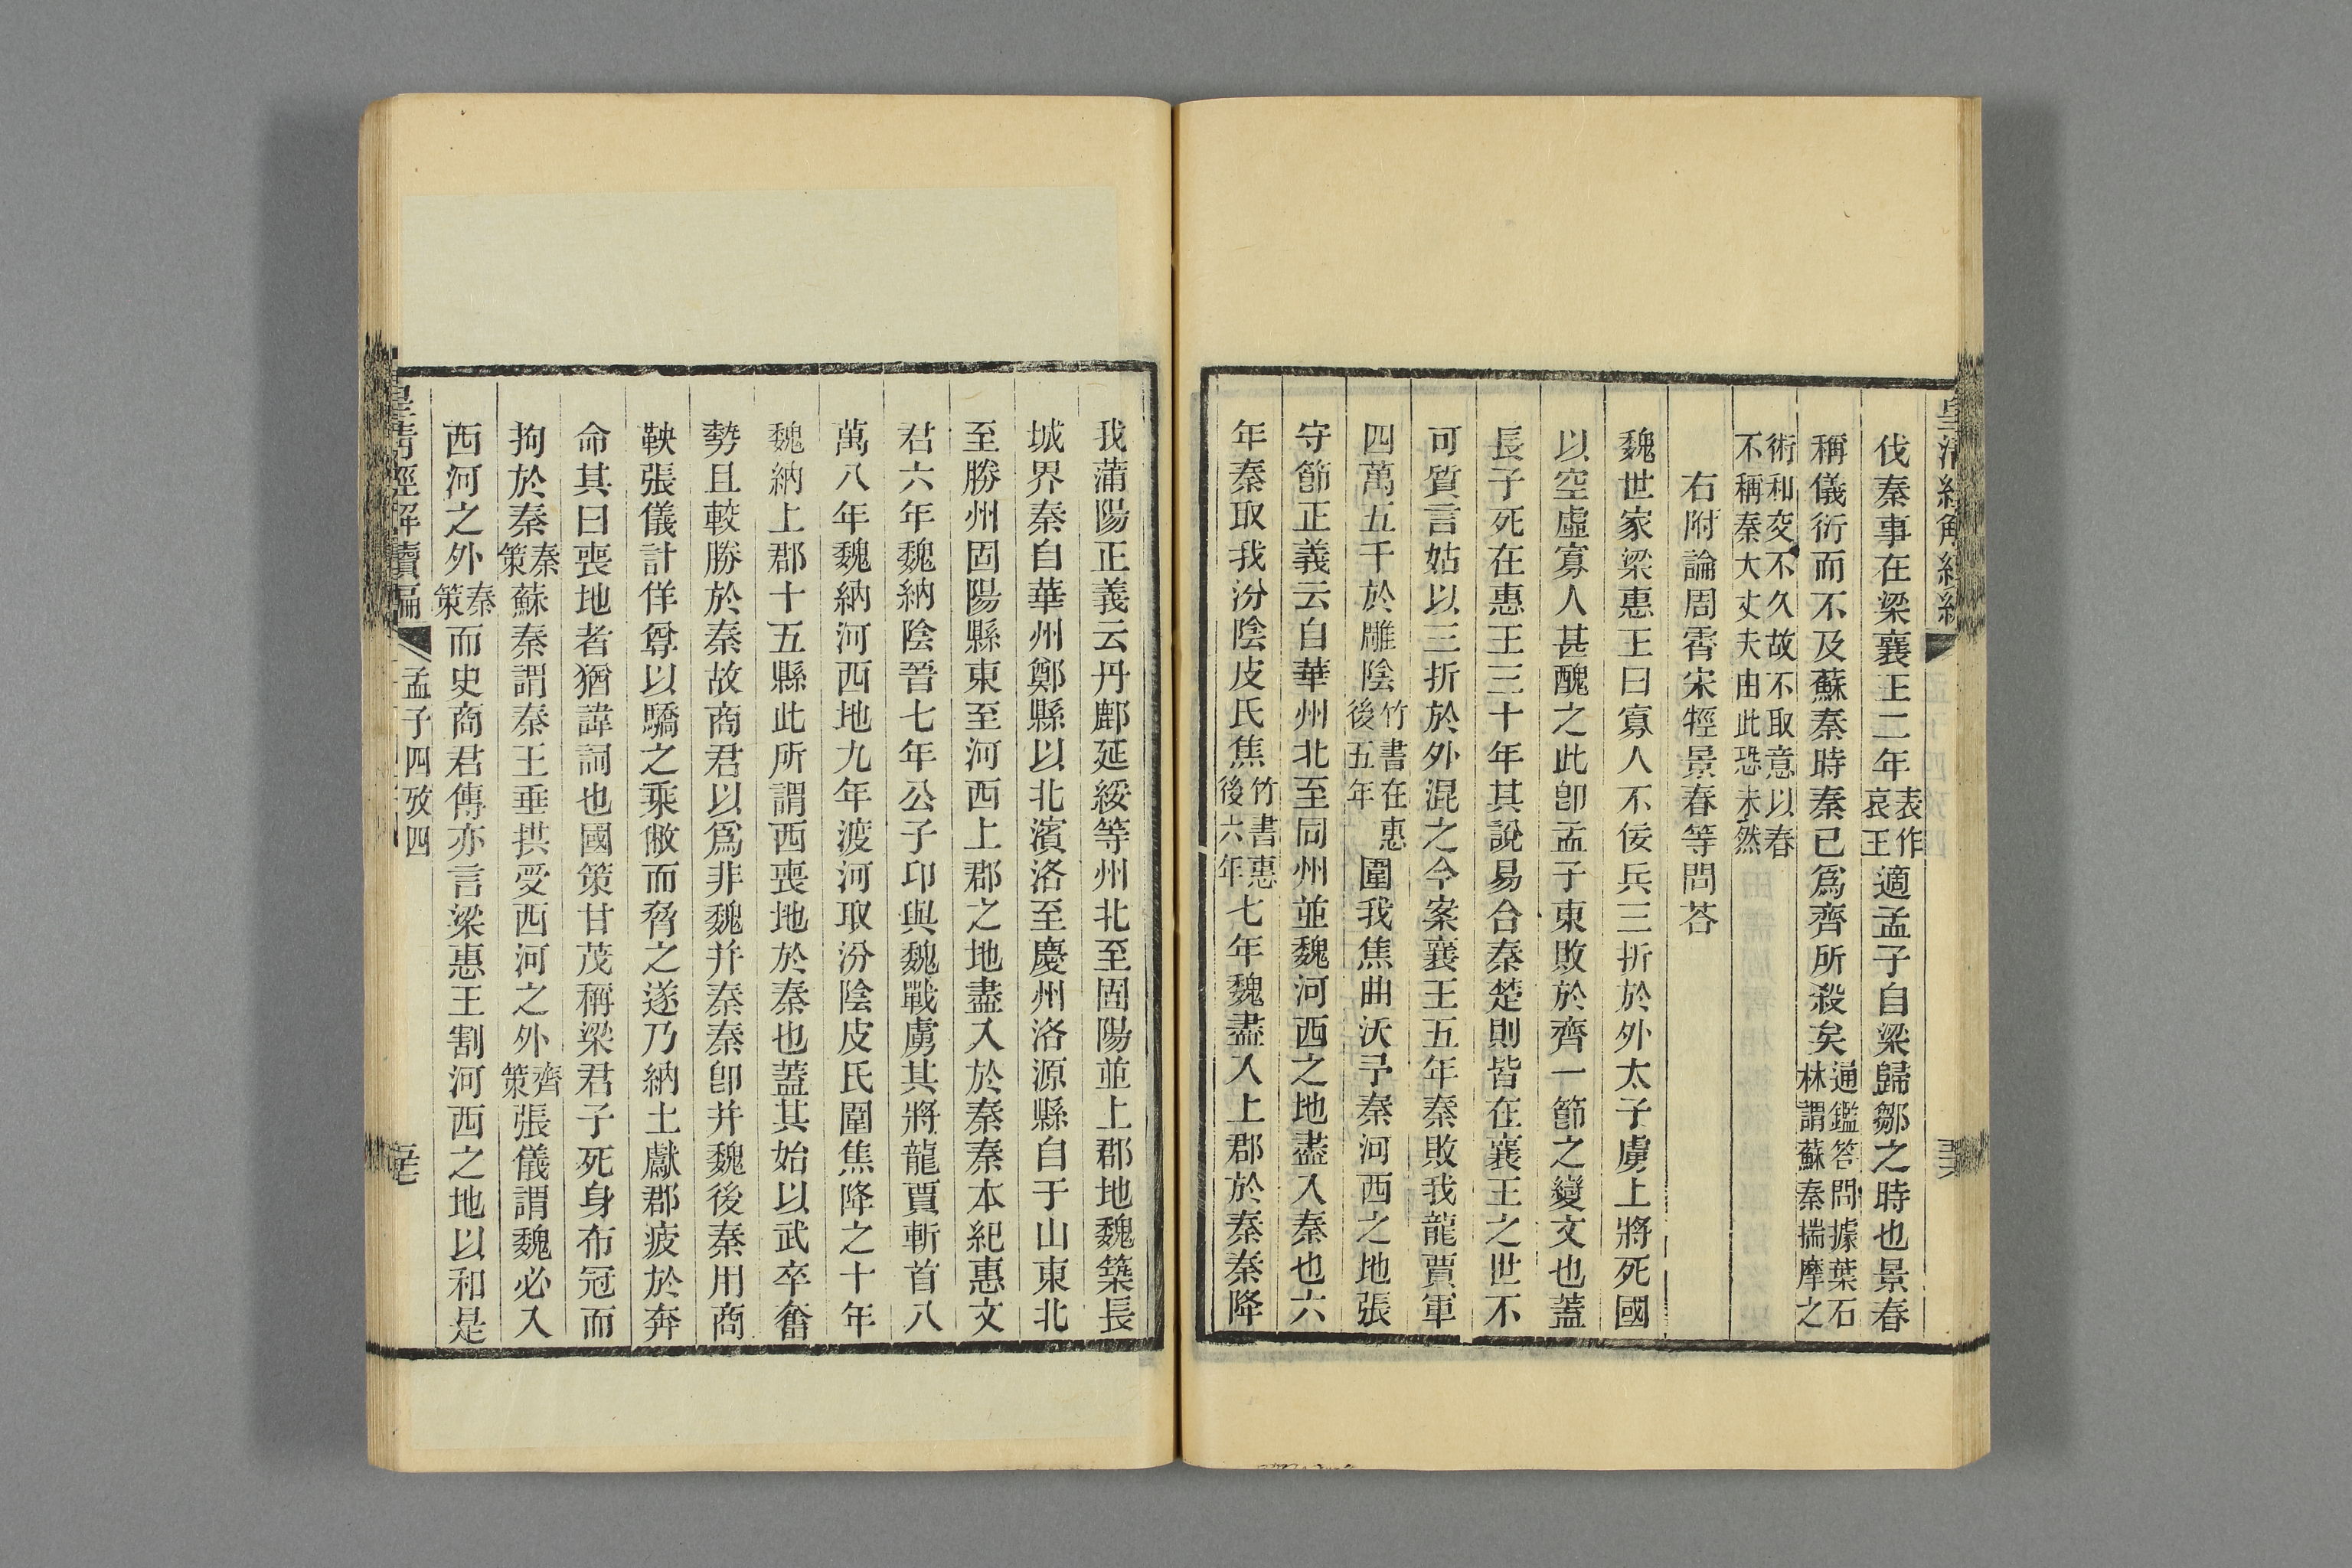 伐秦事在梁襄王二年表作哀王適孟子自梁歸鄒之時也景春
稱儀衍而不及蘇秦時秦已爲齊所殺矣通鑑答問據葉石林謂蘇秦揣摩之
術和交不久故不取意以春不稱秦大丈夫由此恐未然
右附論周霄宋牼景春等問荅
魏世家梁惠王曰寡人不佞兵三折於外太子虜上將死國
以空虛寡人甚醜之此卽孟子東敗於齊一節之變文也蓋
長子死在惠王三十年其說易合秦楚則皆在襄王之世不
可質言姑以三折於外混之今案襄王五年秦敗我龍賈軍
四萬五千於雕陰竹書在惠後五年圍我焦曲沃予秦河西之地張
守節正義云自華州北至同州並魏河西之地盡入秦也六
年秦取我汾陰皮氏焦竹書惠後六年七年魏盡入上郡於秦秦降
我蒲陽正義云丹鄜延綏等州北至固陽並上郡地魏築長
城界秦自華州鄭縣以北濱洛至慶州洛源縣自于山東北
至勝州固陽縣東至河西上郡之地盡入於秦秦本紀惠文
君六年魏納陰晉七年公子卬與魏戰虜其將龍賈斬首八
萬八年魏納河西地九年渡河取汾陰皮氏圍焦降之十年
魏納上郡十五縣此所謂西喪地於秦也蓋其始以武卒奮
勢且較勝於秦故商君以爲非魏并秦秦卽并魏後秦用商
鞅張儀計佯尊以驕之乘敝而脅之遂乃納土獻郡疲於奔
命其曰喪地者猶諱詞也國策甘茂稱梁君子死身布冠而
拘於秦秦策蘇秦謂秦王垂拱受西河之外齊策張儀謂魏必入
西河之外秦策而史商君傳亦言梁惠王割河西之地以和是
皇清經解續編 孟子四攷四